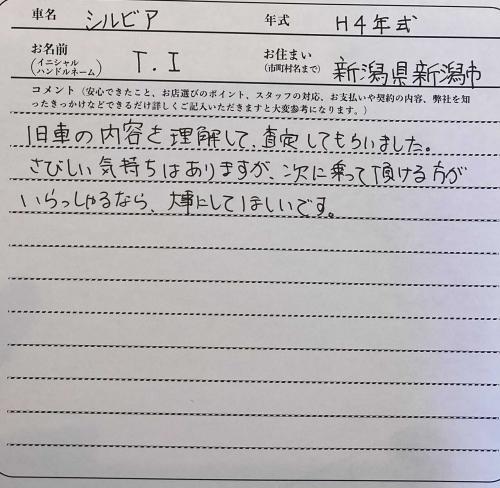 車名 シルビア 年式 H4年式
お名前 (イニシャル ハンドルネーム) T.I お住まい (市町村名まで) 新潟県新潟市
コメント(安心できたこと、お店選びのポイント、スタッフの対応、お支払いや契約の内容、弊社を知
ったきっかけなどできるだけ詳しくご記入いただきますと大変参考になります。)
旧車の内容を理解して、査定してもらいました。
さびしい気持ちはありますが、次に乗って頂ける方が
いらっしゃるなら、大事にしてほしいです。